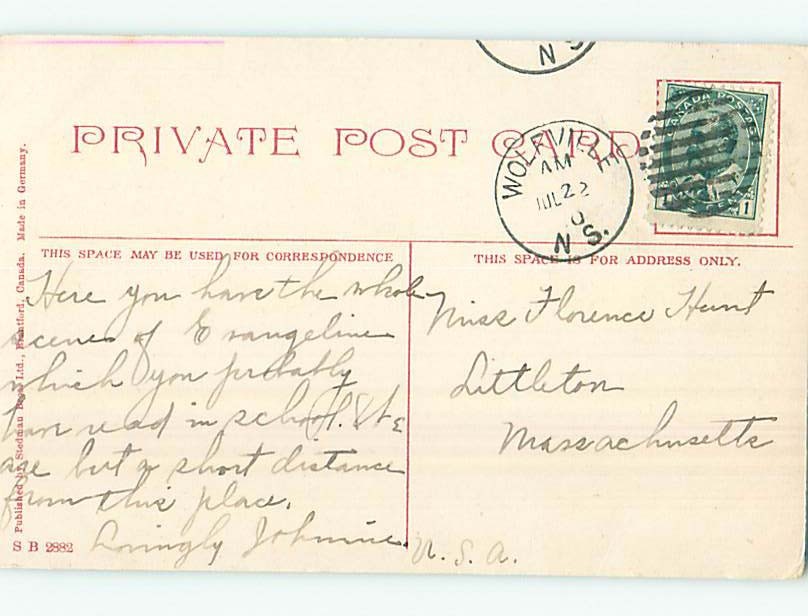 N S
PRIVATE POST CARD
CANADA POSTAGE
1
WOLFVILLE
AM
JUL 22
0
N S.
THIS SPACE MAY BE USED FOR CORRESPONDENCE
THIS SPACE IS FOR ADDRESS ONLY.
Here you have the whole
scene of Evangeline
which you probably
have read in school. We
are but a short distance
from this place.
Lovingly Johnnie.
Miss Florence Hunt
Littleton
Massachusetts
U. S. A.
Published by Stedman Bros. Ltd., Brantford, Canada. Made in Germany.
S B 2882